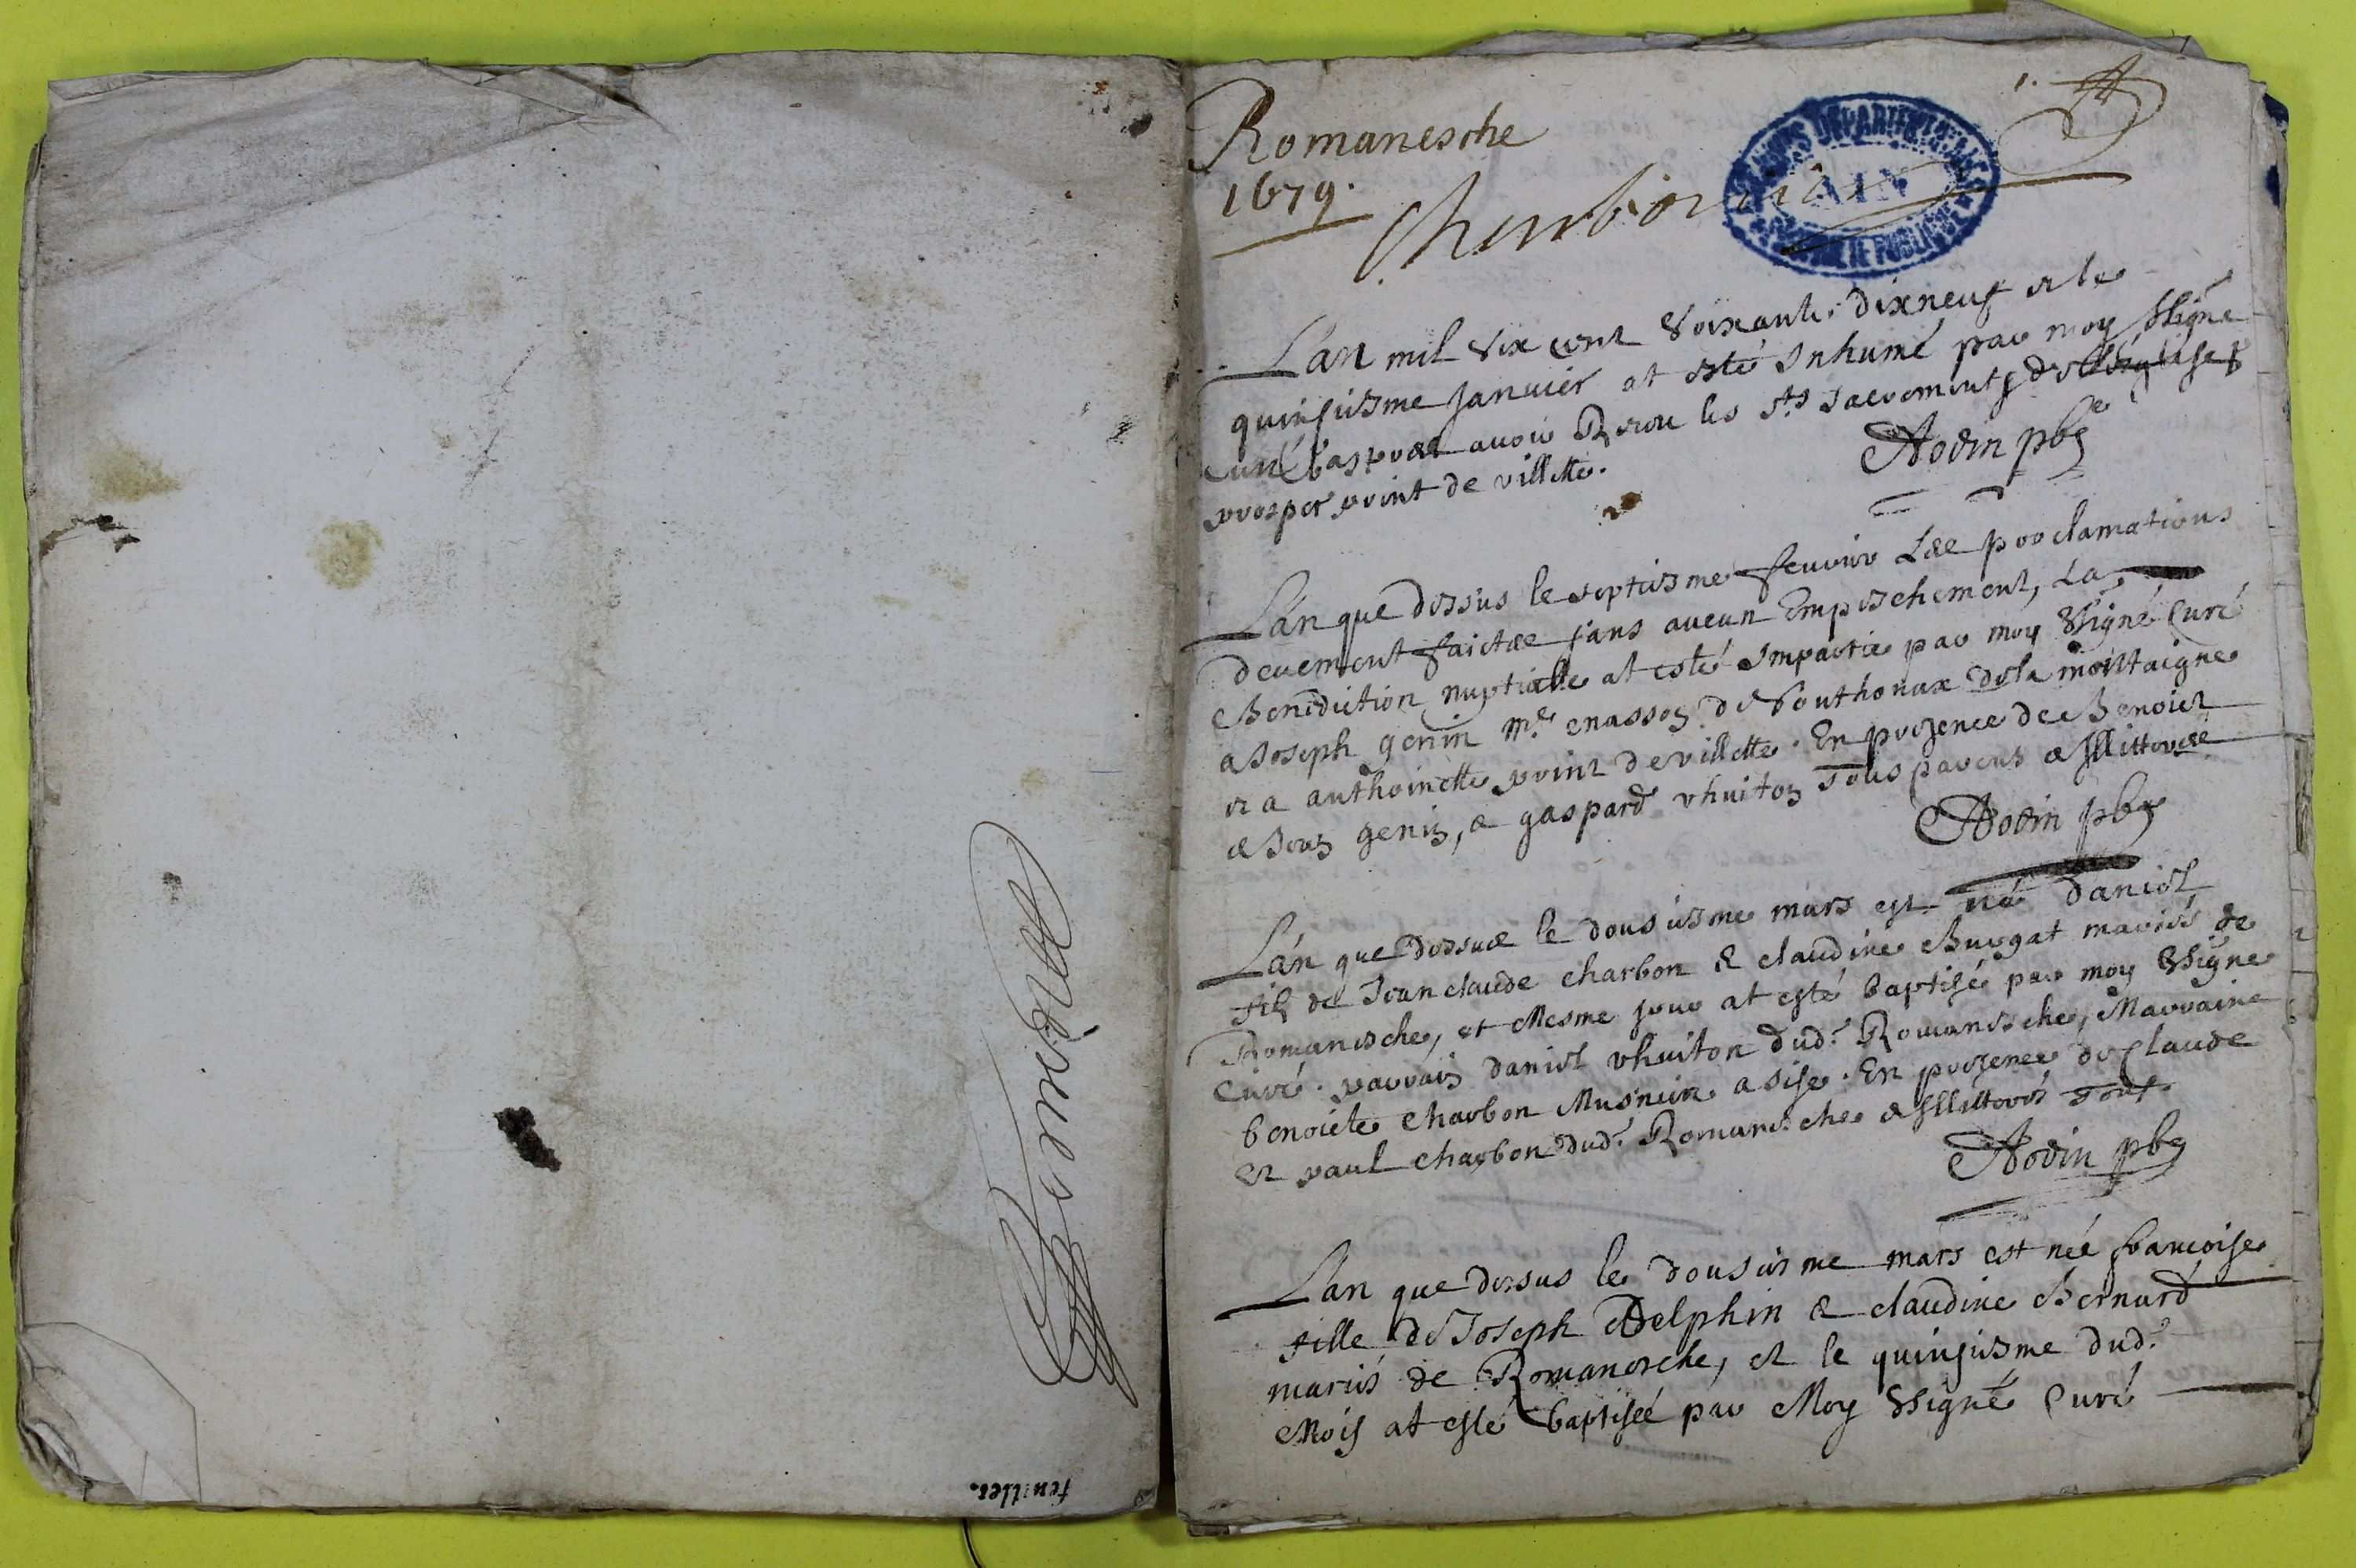 feuillet.
Romanesche
1679.
1.
ARCHIVES DEPARTEMENTALES
AIN
PROPRIETE PUBLIQUE
Lan mil six cent soixante dixneuf et le
quinsiesme Janvier at esté Inhumé par moy ssigné
curé apres avoir Receu les sts sacrements de l'église
prosper point de villette.
Aodin pbr
Lan que dessus le septiesme fevvier Les proclamations
devement faictes sans aucun Empeschement, La
Benediction nuptialle at esté Impartie par moy ssigné Curé
a Joseph genin mre masson de Southonax de la montaigne
et a anthoinette point de villette. En presence de Benoict
& Jean genin, & gaspard vhuiton Tous parens & Illitteres
Aodin pbr
Lán que dessus le dousiesme mars est né daniel
fils de Jean claude charbon & claudine Burgat mariés de
Romanesche, et Mesme jour at esté baptisé par moy ssigné
Curé. parrain daniel vhuiton dud. Romanesche, Marraine
benoicte charbon Musnier a sise. En presence de claude
et paul charbon dud. Romanesche & Illitterés Tous.
Aodin pbr
Lan que dessus le dousiesme mars est née francoise
fille de Joseph Delphin & claudine Bernard
mariés de Romanesche, et le quinsiesme dud.
Mois at esté baptisée par Moy ssigné Curé